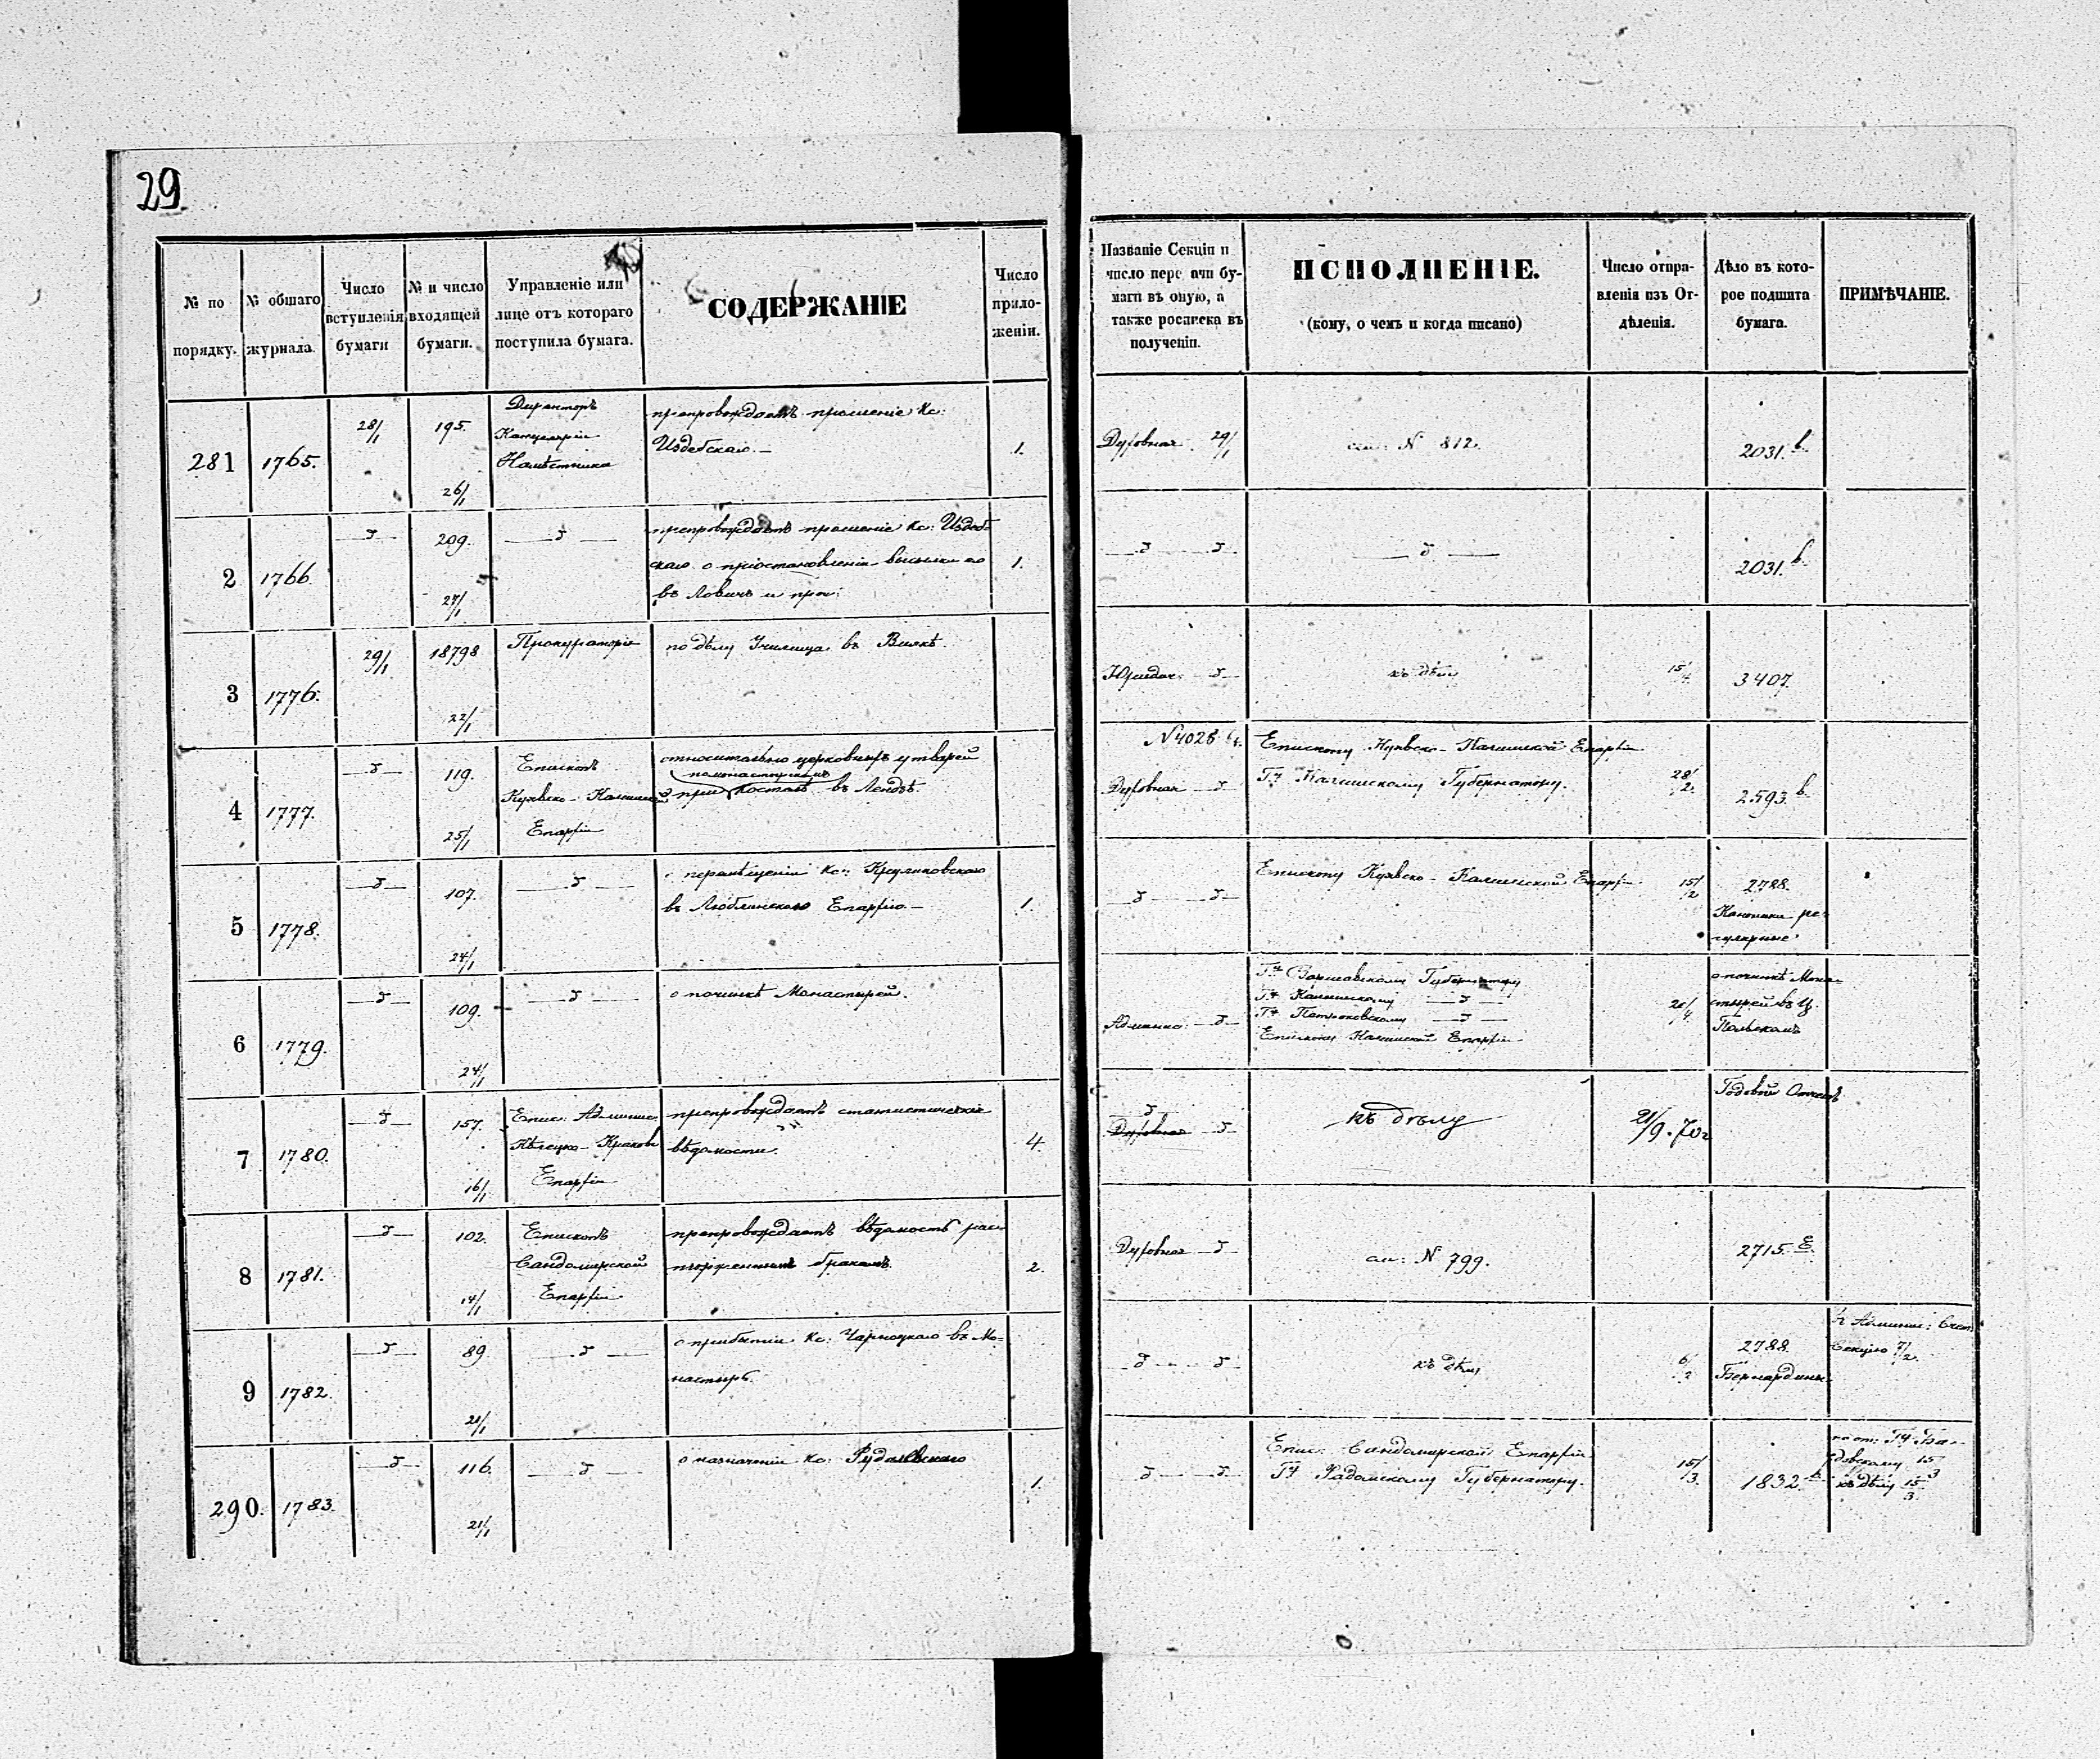 29
№ по порядку.
№ общаго журнала.
Число вступленія бумаги
№ и число входящей бумаги.
Управленіе или лице отъ котораго поступила бумага.
СОДЕРЖАНІЕ
Число приложеніи.
Названіе Секціи и число пере ачи бумаги въ оную, а также росписка въ полученіи.
ИСПОЛНЕНІЕ.
(кому, о чемъ и когда писано)
Число отправленія изъ Отдѣленія.
Дѣло въ которое подшита бумага.
ПРИМѢЧАНІЕ.
281 1765. 28/1 195. 26/1
Директоръ
Канцеляріи
Намѣстника
препровождаетъ прошеніе Кс:
Издебскаго.—
1.
Духовная 29/1
см: N 812.
2031.b.
2 1766. —„— 209. 27/1 —„—
препровождаетъ прошеніе Кс: Издеб-
скаго о пріостановленіи высылки его
въ Ловичъ и проч:
1.
—„— „—
—„—
2031.b.
3 1776. 29/1 18798 22/1
Прокураторія
по дѣлу Училища въ
Юридич: „—
къ дѣлу
15/4
3407.
4 1777. —„— 119. 25/1
Епископъ
Куявско-Калишской
Епархіи
относительно церковныхъ утварей
помонастырскомъ
при костелѣ въ Лендѣ.
N 4028
Духовная „
Епископу Куявско-Калишской Епархіи
Гну Калишскому Губернатору.
28/2
2593.b.
5 1778. —„— 107. 24/1 —„—
о перемѣщеніи Кс:
въ Люблинскую Епархію.—
1.
—„— „—
Епископу Куявско-Калишской Епархіи
15/2
2788.
Каноники ре-
гулярные
6 1779. —„— 109. 24/1 —„—
о починкѣ Монастырей.
Админис: „—
Гну Варшавскому Губернатору
Гну Калишскому —„—
Гну Петроковскому —„—
Епископу Калишской Епархіи
о починкѣ Мона-
стырей въ Ц.
Польскомъ
7 1780. —„— 157. 16/1
Епис: Админис
Кѣлецко-Краков
Епархіи
препровождаетъ статистическія
вѣдомости.
4.
„
Духовная „—
къ дѣлу
21/9. 70г
Годовой Отчетъ
8 1781. —„— 102. 14/1
Епископъ
Сандомирской
Епархіи
препровождаетъ вѣдомость рас-
торженнымъ бракамъ.
2.
Духовная „—
см: N 799.
2715.E.
9 1782. —„— 89. 21/1 —„—
о прибытіи Кс: Чарнецкаго въ Мо-
настырь.
—„— „—
къ дѣлу
6/2
2788.
Бернардины
Секцію 7/2.
290. 1783. —„— 116. 21/1 —„—
о назначеніи Кс:
1.
—„— „—
Епис: Сандомирской Епархіи
Гну Радомскому Губернатору.
15/3.
1832
15/3
къ дѣлу 15/3.